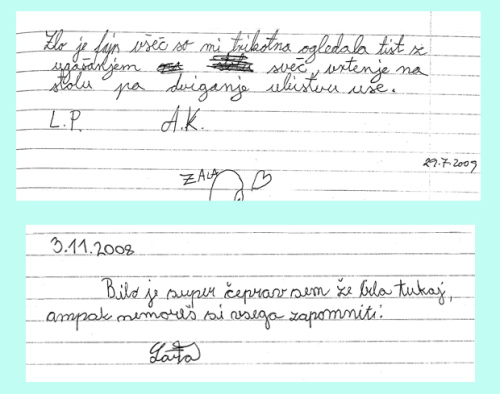 Zlo je fajn všeč so mi trikotna ogledala tist z
ugašanjem sveč, vrtenje na
stolu pa dviganje ubistvu vse.
L.P. A.K.
29.7.2009
ZALA
3.11.2008
Bilo je super čeprav sem že bla tukaj,
ampak nemoreš si vsega zapomniti.